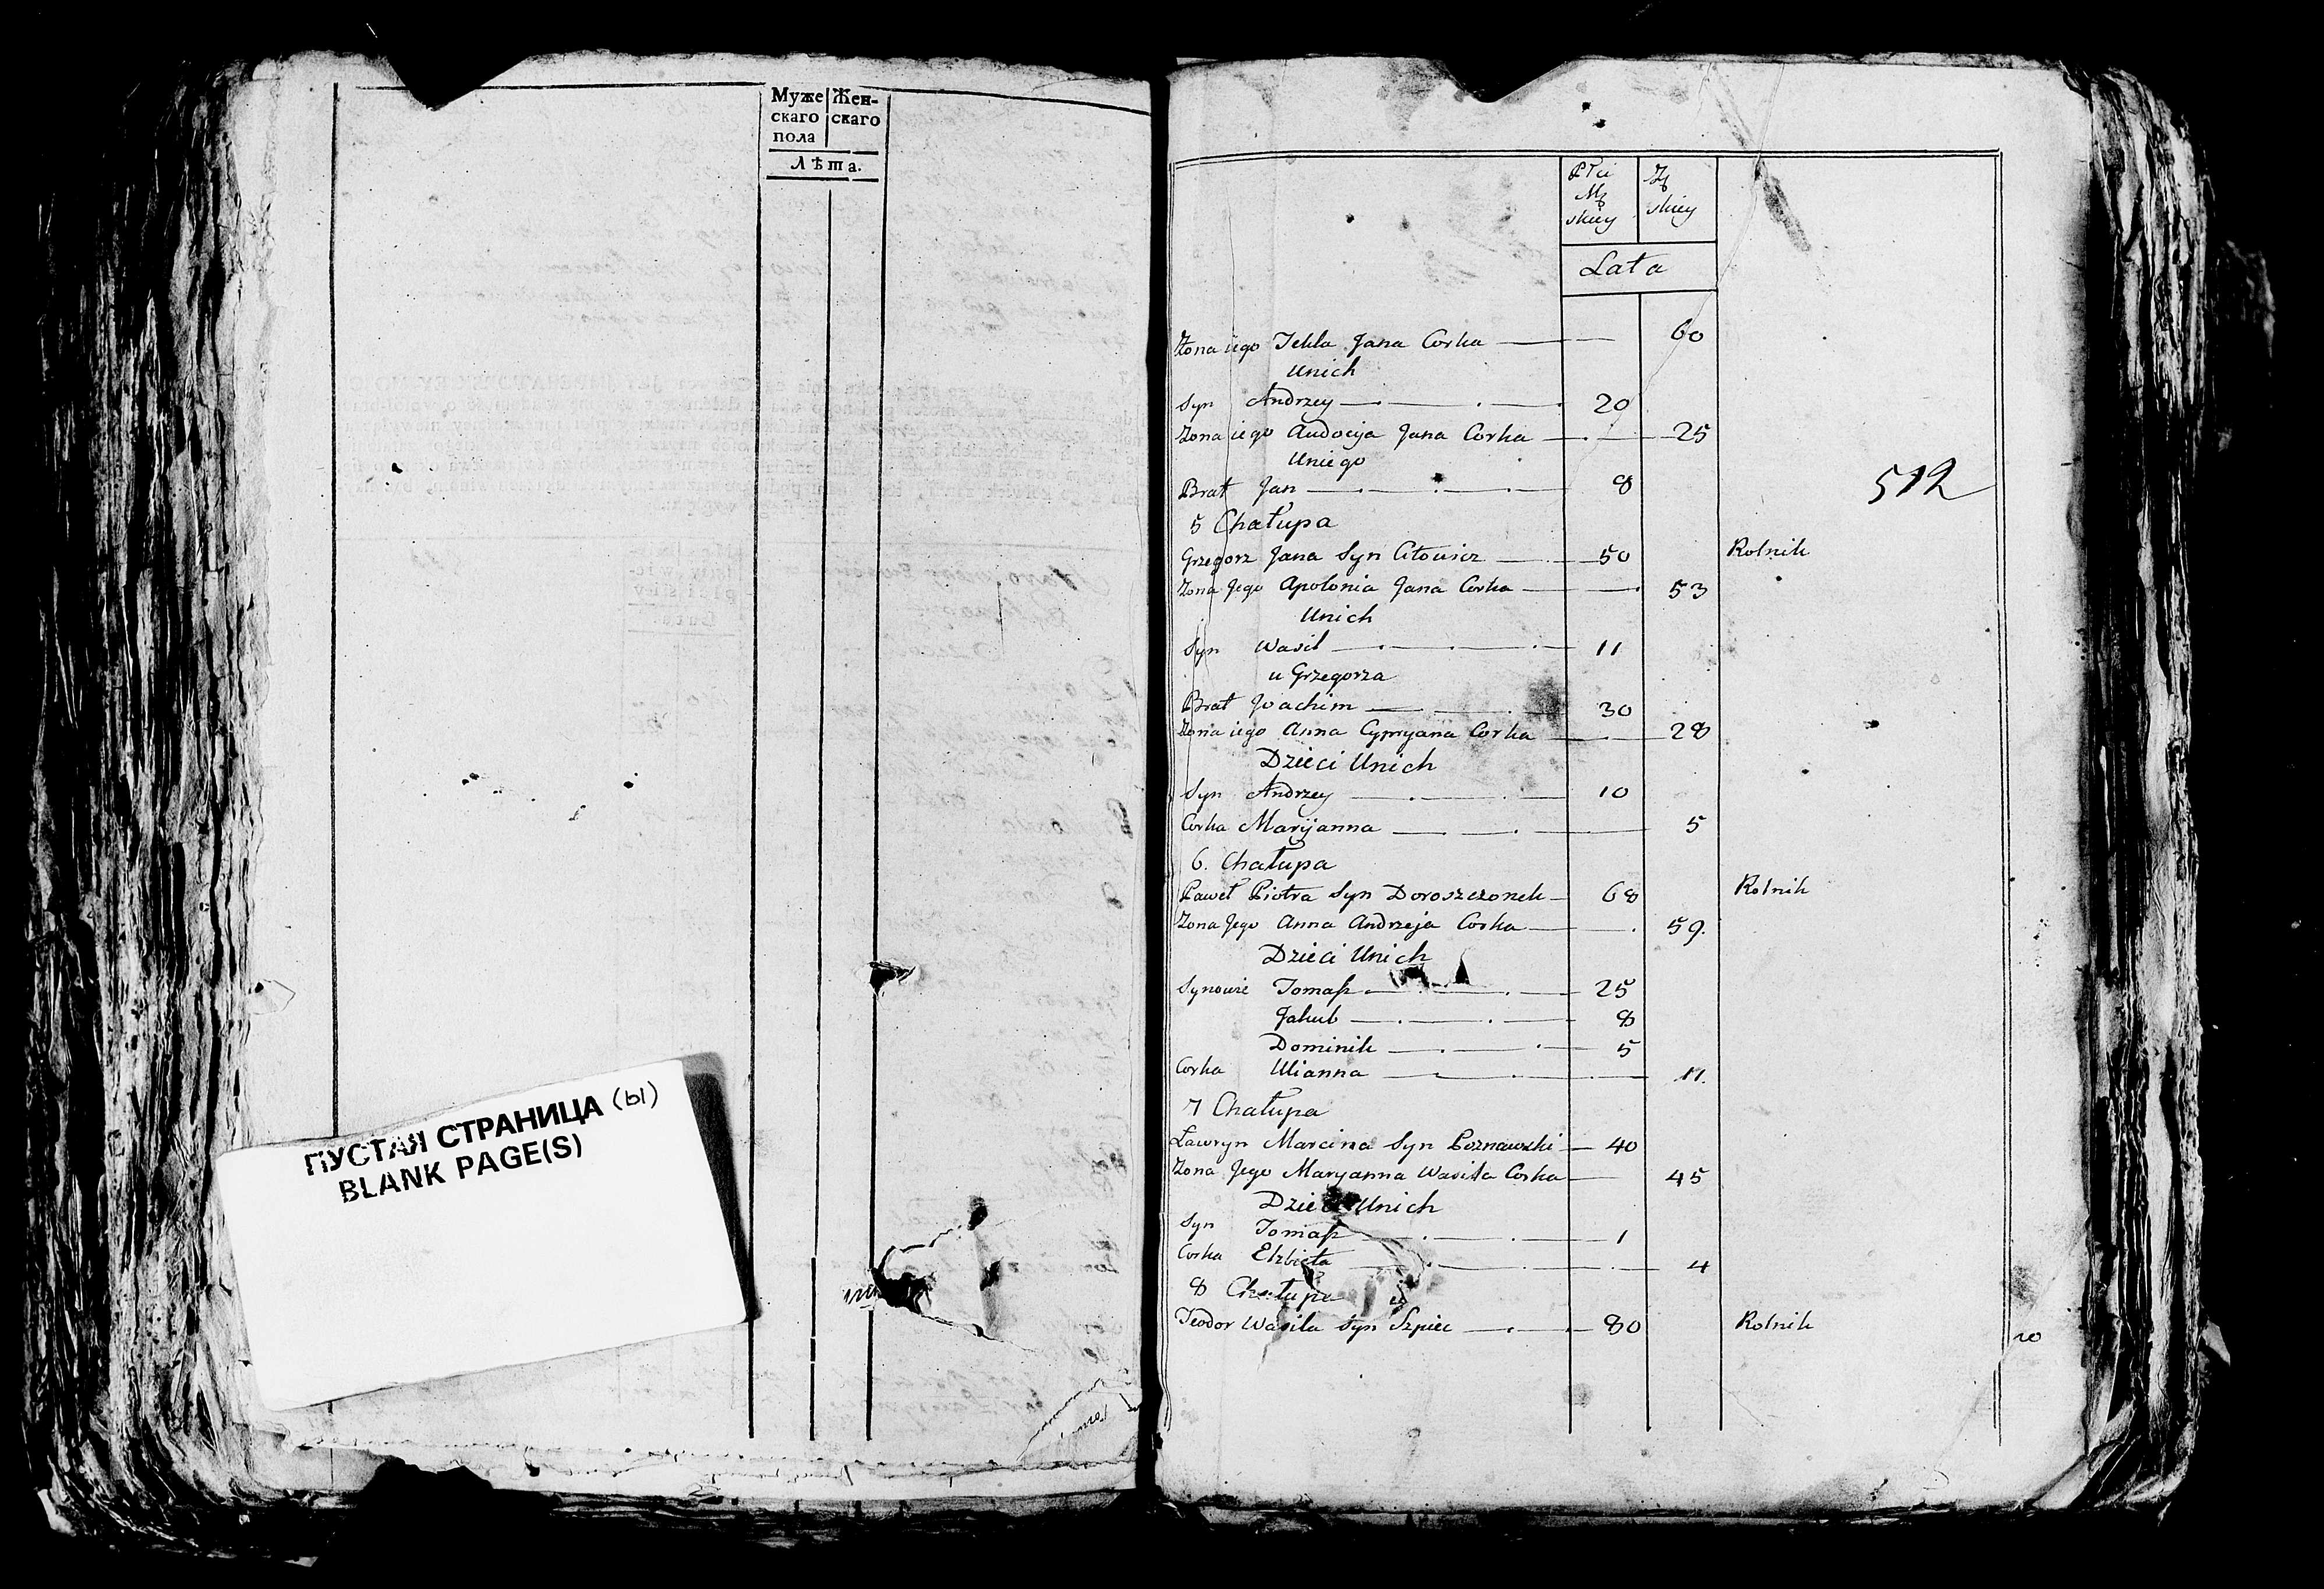 Муже Жен-
скаго скаго
пола
Лѣта.
ПУСТАЯ СТРАНИЦА (ы)
BLANK PAGE(S)
Płci
Mę Żę
skiey skiey
Lata
Zona iego Tekla Jana Corka — 60
Unich
Syn Andrzey — 20
Zona iego Audocija Jana Corka — 25
Uniego
Brat Jan — 8
512
5 Chałupa
Grzegorz Jana Syn — 50 Rolnik
Zona Jego Apolonia Jana Corka — 53
Unich
Syn Wasil — 11
u Grzegorza
Brat Joachim — 30
Zona iego Anna Cypryana Corka — 28
Dzieci Unich
Syn Andrzey — 10
Corka Maryjanna — 5
6. Chałupa
Paweł Piotra Syn Doroszczonek — 68 Rolnik
Zona Jego Anna Andrzeja Corka — 59.
Dzieci Unich
Synowie Tomaſz — 25
Jakub — 8
Dominik — 5
Corka Ulianna —
7 Chałupa
Ławryn Marcina Syn Poznawski — 40
Zona Jego Maryanna Wasila Corka — 45
Dzieci Unich
Syn Tomaſz — 1
Corka Elzbieta — 4
8 Chałupa
Teodor Wasila Syn Szpiec — 80 Rolnik